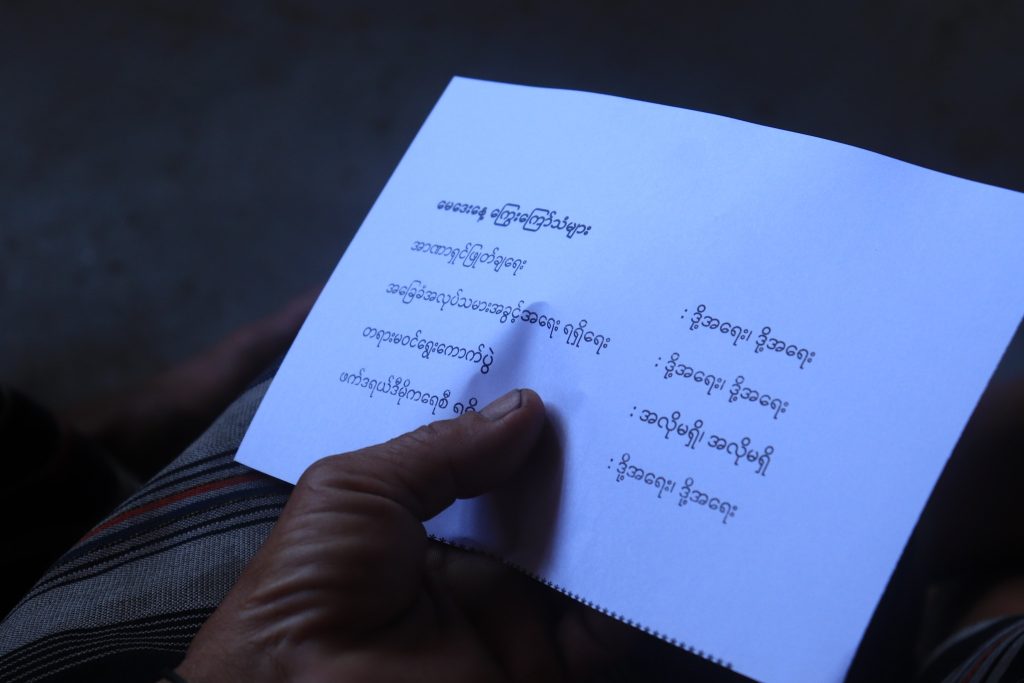 မေဒေးနေ့ ကြွေးကြော်သံများ
အာဏာရှင်ဖြုတ်ချရေး : ဒို့အရေး၊ ဒို့အရေး
အခြေခံအလုပ်သမားအခွင့်အရေး ရရှိရေး : ဒို့အရေး၊ ဒို့အရေး
တရားမဝင်ရွေးကောက်ပွဲ : အလိုမရှိ၊ အလိုမရှိ
ဖက်ဒရယ်ဒီမိုကရေစီ : ဒို့အရေး၊ ဒို့အရေး